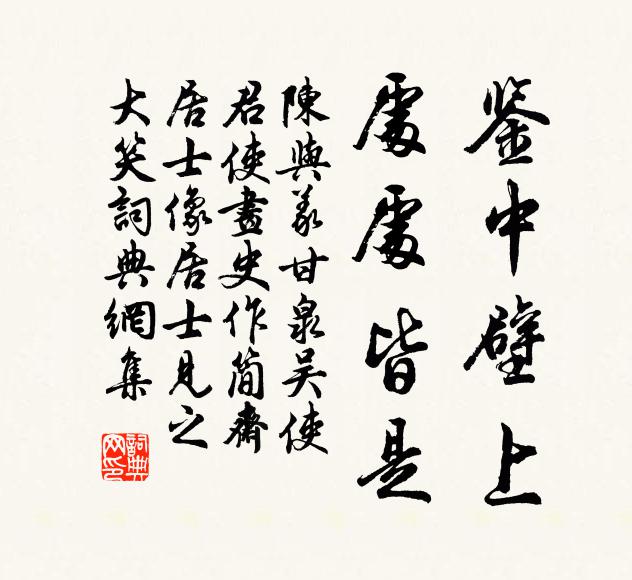 鉴中壁上
處處皆是
陳與義甘泉吴使
君使畫史作簡齋
居士像居士見之
大笑詞典網集
詞典網印